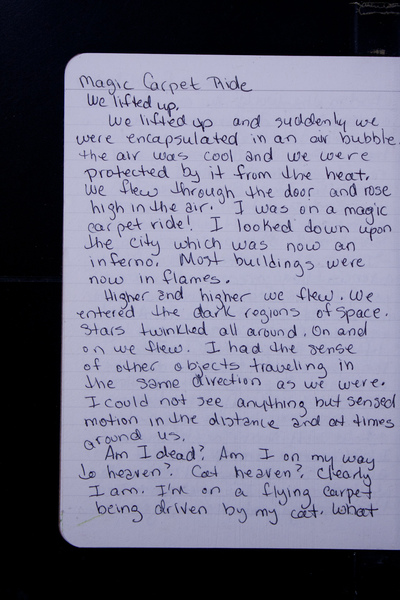 Magic Carpet Ride
We lifted up.
We lifted up and suddenly we
were encapsulated in an air bubble.
the air was cool and we were
protected by it from the heat.
We flew through the door and rose
high in the air. I was on a magic
carpet ride! I looked down upon
the city which was now an
inferno. Most buildings were
now in flames.
Higher and higher we flew. We
entered the dark regions of space.
Stars twinkled all around. On and
on we flew. I had the sense
of other objects traveling in
the same direction as we were.
I could not see anything but sensed
motion in the distance and at times
around us.
Am I dead? Am I on my way
to heaven? Cat heaven? Clearly
I am. I'm on a flying carpet
being driven by my cat. What